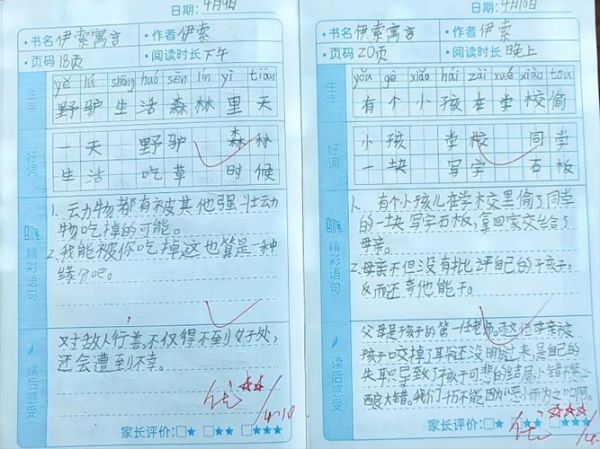 日期:4月9日
·书名 伊索寓言 ·作者 伊索
·页码 18页 ·阅读时长 下午
生字
yě lǘ shēng huó sēn lín yì tiān
野驴生活森林里天
好词
一天 野驴 森林
生活 吃草 时候
精彩语句
1.动物都有被其他强壮动
物吃掉的可能。
2.我能被你吃掉这也算是一种
缘分吧。
读后感受
对敌人行善,不仅得不到好处,
还会遭到不幸。
优 4.10
家长评价:□★ □★★ □★★★
日期:4月10日
·书名 伊索寓言 ·作者 伊索
·页码 20页 ·阅读时长 晚上
生字
yǒu gè xiǎo hái zài xué xiào tōu
有个小孩在学校偷
好词
小孩 学校 同学
一块 写字 石板
精彩语句
1.有个小孩儿在学校里偷了同学
的一块写字石板,拿回家交给了
母亲。
2.母亲不但没有批评自己的孩子,
反而还夸他能干。
读后感受
父母是孩子的第一任老师。这位母亲被
孩子咬掉了耳朵还没明白过来,是自己的
失职导致了孩子可悲的结局,小错不
酿大错。我们千万不能因为恶小而为之啊。
优
家长评价:□★ □★★ □★★★